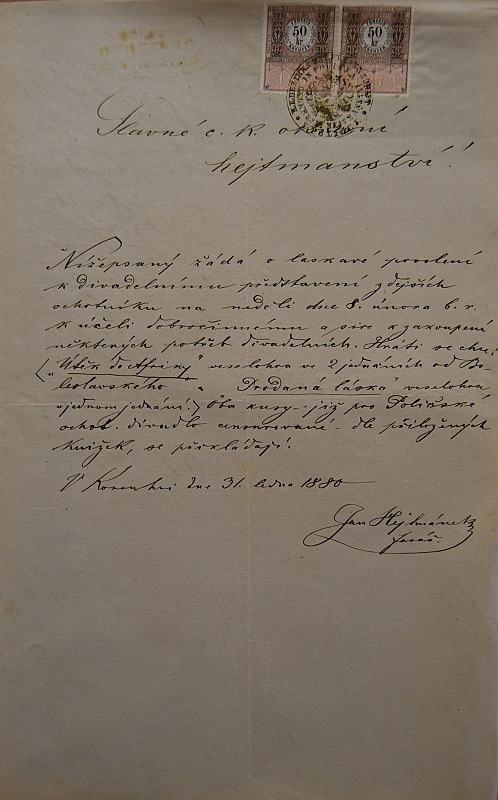 50 kr 50 kr
Slavné c. k. okresní
hejtmanství!
Nížepsaný žádá o laskavé povolení
k divadelnímu představení zdejších
ochotníku na neděli dne 8. února b. r.
k účeli dobročinnému a sice k zakoupení
některých potřeb divadelních. Hráti se chce:
(„Útěk do Afriky" veselohra ve 2 jednáních od Bo-
leslavského a „Prodaná láska" veselohra
v jednom jednání.) Oba kusy již pro Poličské
ochot. divadlo censurované dle přiložených
knížek, se překládají.
V dne 31. ledna 1880
Jan Hejtmánek
farář.